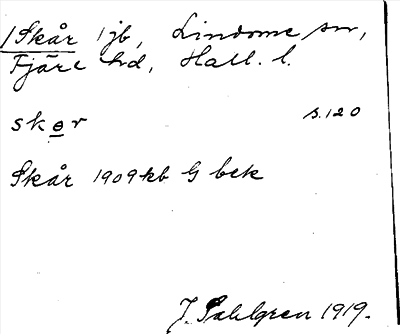 /Skår 1 jb, Lindome sn,
Fjäre hd, Hall. l.
skɵr s. 120
Skår 1909 kb G bek
J. Sahlgren 1919.